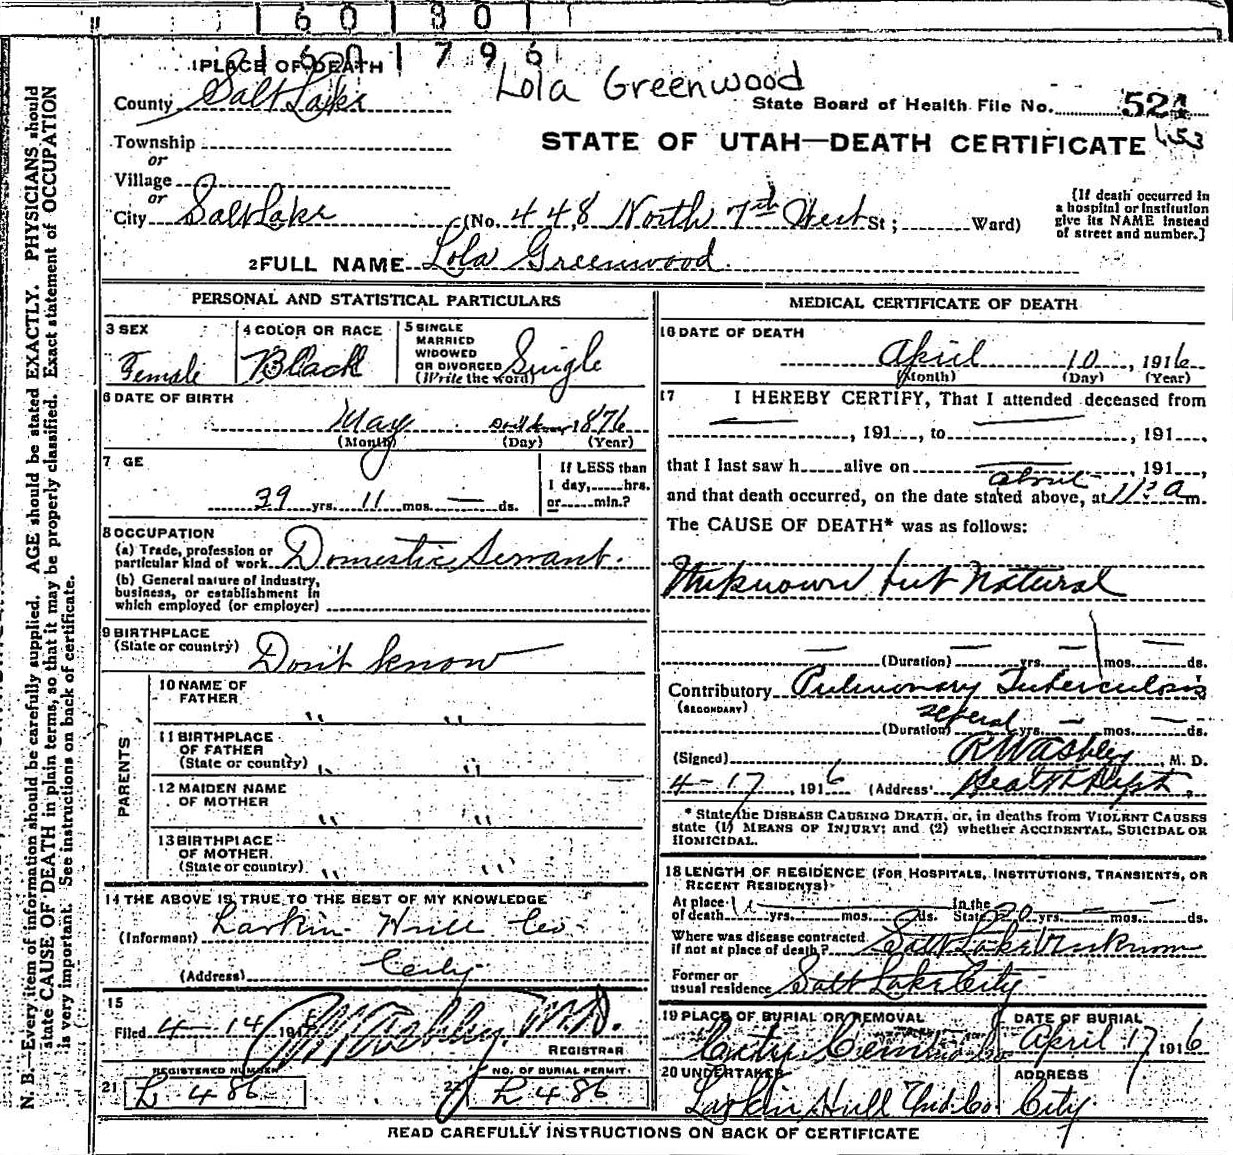 1 6 0 1 8 0 1
1 6 0 1 7 9 6
Lola Greenwood
1 PLACE OF DEATH
County Salt Lake
State Board of Health File No. 521
Township
STATE OF UTAH—DEATH CERTIFICATE
or
Village
or
City Salt Lake (No. 448 North 7th West St; Ward)
[If death occurred in
a hospital or institution
give its NAME instead
of street and number.]
2 FULL NAME Lola Greenwood.
PERSONAL AND STATISTICAL PARTICULARS
3 SEX
Female
4 COLOR OR RACE
Black
5 SINGLE
MARRIED
WIDOWED
OR DIVORCED
(Write the word)
Single
6 DATE OF BIRTH
May 1876
(Month) (Day) (Year)
7 GE
39 yrs. 11 mos. — ds.
If LESS than
1 day, hrs.
or min.?
8 OCCUPATION
(a) Trade, profession or
particular kind of work Domestic Servant.
(b) General nature of industry,
business, or establishment in
which employed (or employer)
9 BIRTHPLACE
(State or country) Don't know
PARENTS
10 NAME OF
FATHER
" "
11 BIRTHPLACE
OF FATHER
(State or country) " "
12 MAIDEN NAME
OF MOTHER
" "
13 BIRTHPLACE
OF MOTHER
(State or country) " "
14 THE ABOVE IS TRUE TO THE BEST OF MY KNOWLEDGE
(Informant) Larkin Hull Co.
(Address) City
15
Filed 4-14 191 M.D.
REGISTRAR
REGISTERED NUMBER
21 L 486
NO. OF BURIAL PERMIT
22 L 486
MEDICAL CERTIFICATE OF DEATH
16 DATE OF DEATH
April 10, 1916
(Month) (Day) (Year)
17 I HEREBY CERTIFY, That I attended deceased from
—, 191, to —, 191,
that I last saw h alive on —, 191,
about
and that death occurred, on the date stated above, at 11 a m.
The CAUSE OF DEATH* was as follows:
Unknown but Natural
(Duration) yrs. mos. ds.
Contributory Pulmonary Tuberculosis
(SECONDARY)
several
(Duration) yrs. — mos. — ds.
(Signed) M. D.
4-17, 1916 (Address) Health Dept.
* State the DISEASE CAUSING DEATH, or, in deaths from VIOLENT CAUSES
state (1) MEANS OF INJURY; and (2) whether ACCIDENTAL, SUICIDAL OR
HOMICIDAL.
18 LENGTH OF RESIDENCE (FOR HOSPITALS, INSTITUTIONS, TRANSIENTS, OR
RECENT RESIDENTS)
At place
of death yrs. mos. ds. In the
State 20 yrs. — mos. — ds.
Where was disease contracted
if not at place of death? Salt Lake Unknown
Former or
usual residence Salt Lake City
19 PLACE OF BURIAL OR REMOVAL
City Cem
DATE OF BURIAL
April 17 1916
20 UNDERTAKER
Larkin Hull Und. Co.
ADDRESS
City
READ CAREFULLY INSTRUCTIONS ON BACK OF CERTIFICATE
N. B.—Every item of information should be carefully supplied. AGE should be stated EXACTLY. PHYSICIANS should
state CAUSE OF DEATH in plain terms, so that it may be properly classified. Exact statement of OCCUPATION
is very important. See instructions on back of certificate.